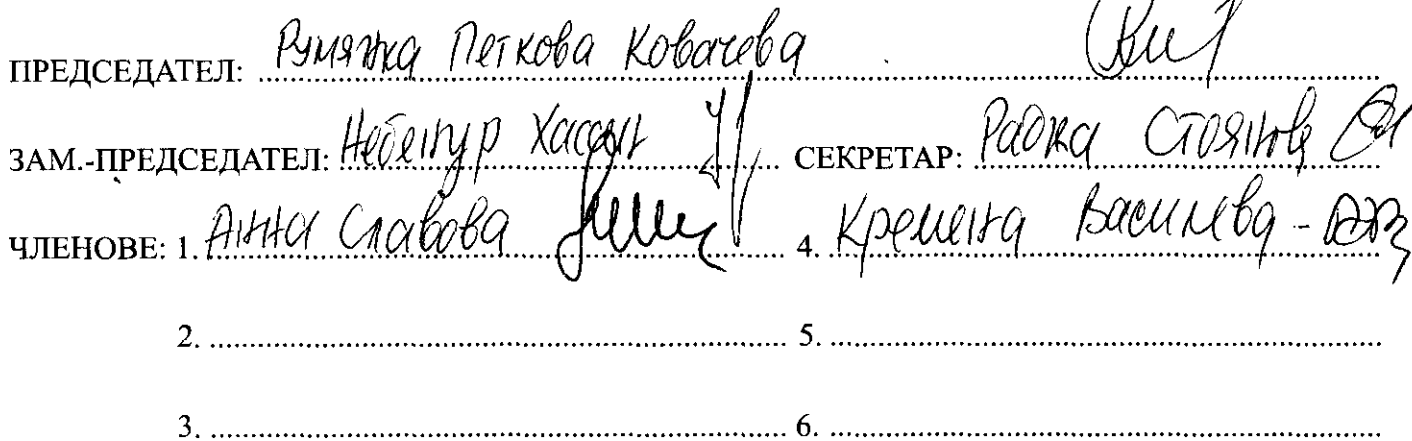 ПРЕДСЕДАТЕЛ: Румянка Петкова Ковачева
ЗАМ.-ПРЕДСЕДАТЕЛ: Небенур Хасан СЕКРЕТАР: Радка Стоянова
ЧЛЕНОВЕ: 1. Анна Славова 4. Кремена Василева -
2. 5.
3. 6.